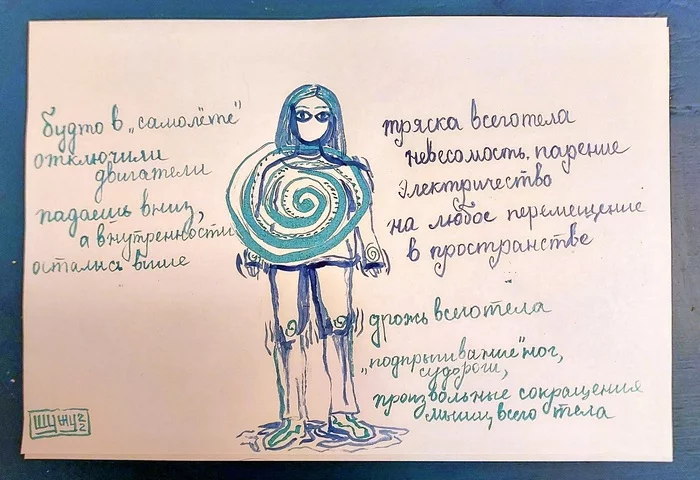 будто в „самолёте"
отключили
двигатели
падаешь вниз,
а внутренности
остались выше
тряска всего тела
невесомость, парение
электричество
на любое перемещение
в пространстве
дрожь всего тела
„подпрыгивание" ног,
судороги,
произвольные сокращения
мышц всего тела